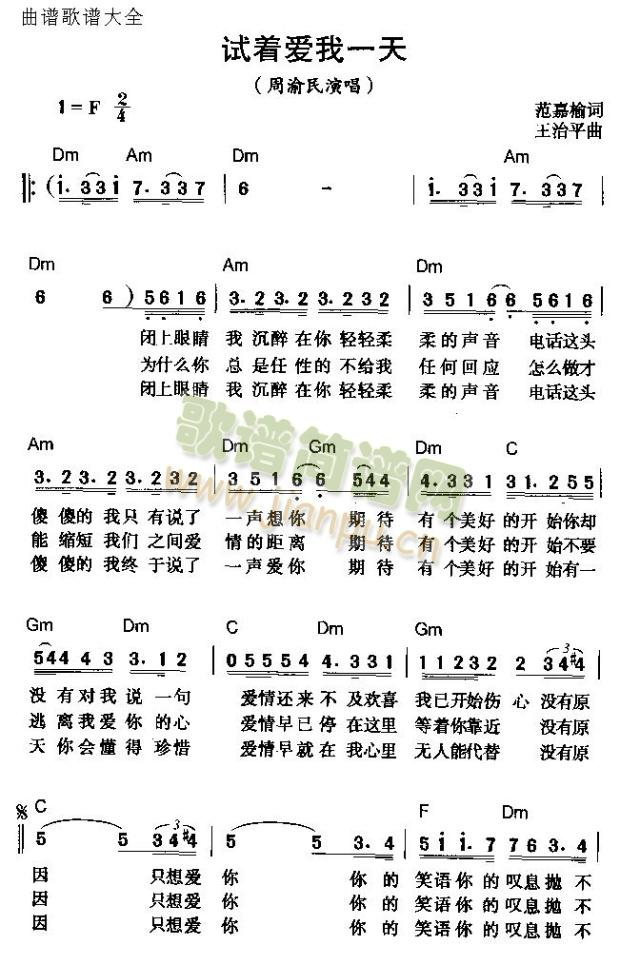 曲谱歌谱大全
试着爱我一天
（周渝民演唱）
1 = F 2/4
范嘉榆词
王治平曲
Dm Am Dm Am
‖: (i. 3 3 i 7. 3 3 7 | 6 - | i. 3 3 i 7. 3 3 7 |
Dm Am Dm
6 6 ) 5 6 1 6 | 3. 2 3. 2 3. 2 3 2 | 3 5 1 6 6 5 6 1 6 |
闭上眼睛 我 沉醉 在 你 轻轻柔 柔 的 声 音 电话这头
为什么你 总 是任 性的 不给我 任 何 回 应 怎么做才
闭上眼睛 我 沉醉 在 你 轻轻柔 柔 的 声 音 电话这头
歌谱简谱网
www.jianpu.cn
Am Dm Gm Dm C
3. 2 3. 2 3. 2 3 2 | 3 5 1 6 6 5 4 4 | 4. 3 3 1 3 1. 2 5 5 |
傻 傻的 我只 有说了 一声想你 期待 有 个美好 的 开始你却
能 缩短 我们 之间爱 情的距离 期待 有 个美好 的 开始不要
傻 傻的 我终 于说了 一声爱你 期待 有 个美好 的 开始有一
Gm Dm C Dm Gm
5 4 4 4 3 3. 1 2 | 0 5 5 5 5 4 4. 3 3 1 | 1 1 2 3 2 2 3 4 #4 |
没 有 对 我 说 一 句 爱情还来 不 及欢喜 我已开始伤 心 没有原
逃 离 我 爱 你 的 心 爱情早已 停 在这里 等着你靠近 没有原
天 你 会 懂 得 珍惜 爱情早就 在 我心里 无人能代替 没有原
C F Dm
5 5 3 4 #4 | 5 5 3. 4 | 5 i i. 7 7 6 3. 4 |
因 只想爱 你 你 的 笑语 你 的 叹息 抛 不
因 只想爱 你 你 的 笑语 你 的 叹息 抛 不
因 只想爱 你 你 的 笑语 你 的 叹息 抛 不